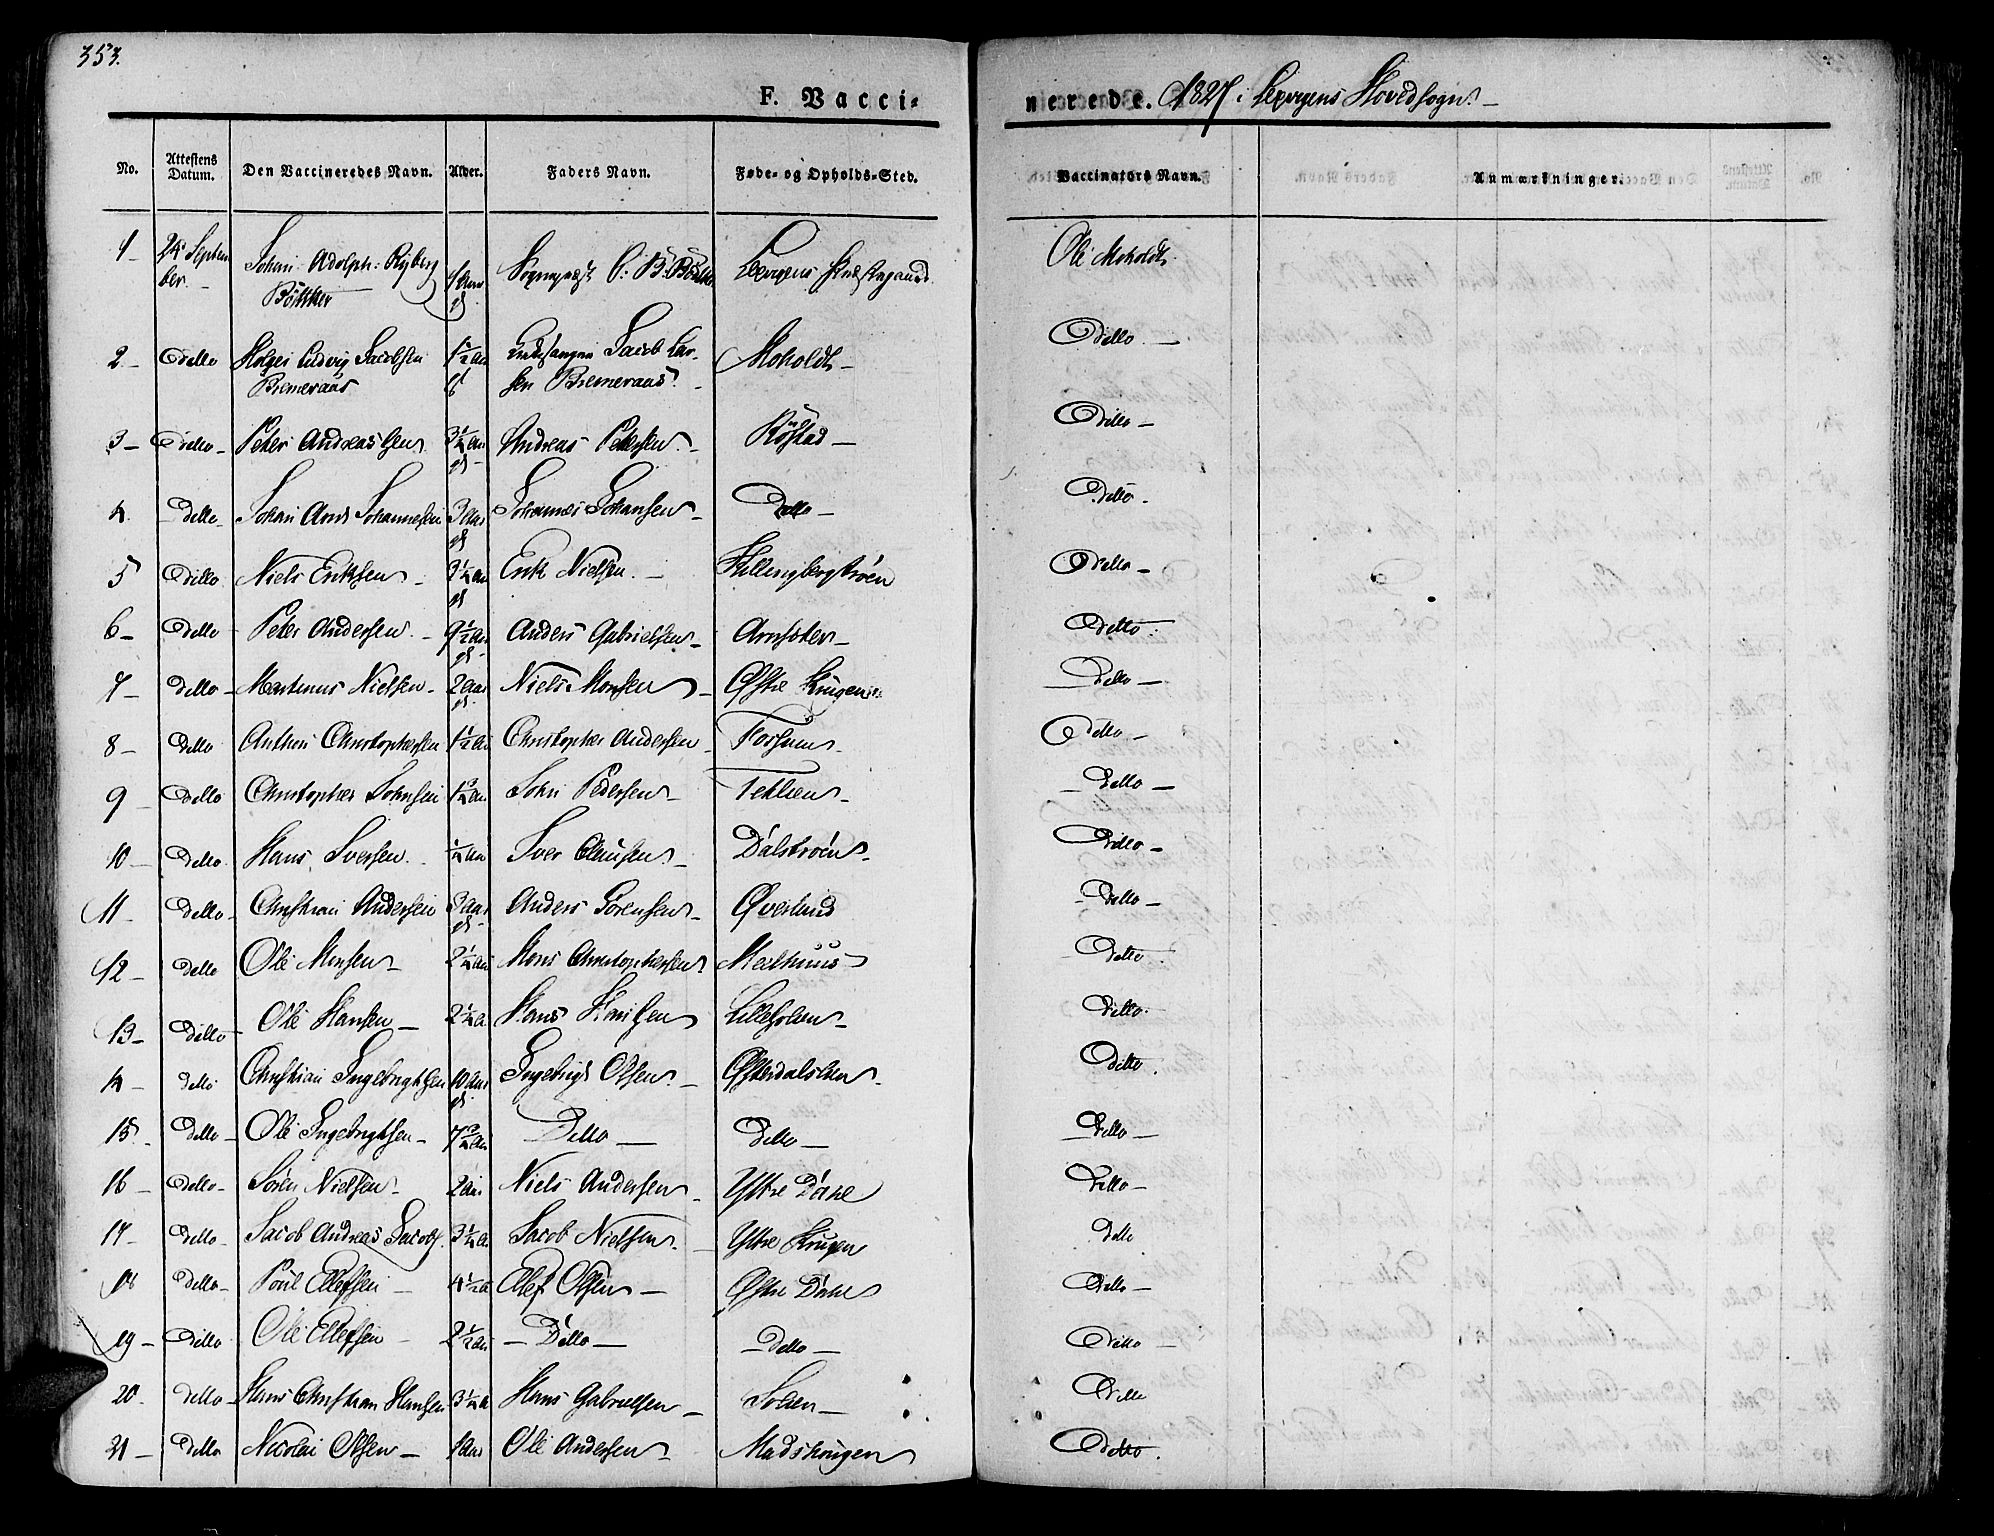 353.
F. Vacci-
nerede. 1827 i Lexvigens Hovedsogn
No. Attestens Datum. Den Vaccineredes Navn. Alder. Faders Navn. Føde- og Opholds-Sted. Vaccinators Navn. Anmærkninger.
1 - 24 Septem Johan Adolph Ryberg 1 Aar Sogneprest Lexvigens Præstegaard Ole Moholdt
ber - Bøttker gl
2 - Ditto Holger Ludvig Jacobsen 1½ Aar Jacob Lar- Moholdt - Ditto -
Bremeraas gl sen Bremeraas
3 - Ditto - Peter Andreassen 3¼ Aar Andreas Petersen - Røstad - Ditto -
gl
4 Ditto - Johan Arnt Johannesen 3 Aar Johannes Johansen - Ditto - Ditto -
gl
5 Ditto Niels Eriksen - 3¼ Aar Erik Nielsen - Hellingbergtrøen Ditto -
gl
6 - Ditto Peter Andersen - 9½ Aar Anders Gabrielsen - Ditto
gl
7 - Ditto - Martinus Nielsen - 2 Aar Niels Monsen - Østre Krugen Ditto -
gl
8 - Ditto Anthon Christophersen 1½ Aar Christopher Andersen - Fossum - Ditto -
9 - Ditto Christopher Johnsen 1¾ Aar John Pedersen - - Ditto -
10 - Ditto Hans Iversen - ¼ Aar Iver Clausen - Dalstrøen - Ditto -
11 - Ditto - Christian Andersen 3 Aar Anders Sørensen - Øverland - Ditto -
gl
12 - Ditto Ole Monsen - 2¼ Aar Mons Christophersen Melhuus Ditto
13 - Ditto Ole Hansen - 2¼ A Hans Hansen Lilleholen - Ditto
14 - Ditto Christian Ingebrigtsen 10 Aar Ingebrigt Olsen - Ditto
gl
15 - Ditto - Ole Ingebrigtsen - 7¾ Aar Ditto - Ditto - - Ditto -
16 - Ditto - Søren Nielsen - 2 Aar Niels Andersen - Yttre Dahl Ditto -
17 - Ditto - Jacob Andreas Jacobs. 3¼ A Jacob Nielsen - Yttre Krugen Ditto
18 - Ditto - Poul Ellefsen - 4½ A Ellef Olsen - Østre Dahl Ditto -
19 - Ditto Ole Ellefsen - 2½ Aar - Ditto - - Ditto - Ditto
20 - Ditto - Hans Christian Hansen 3¼ A Hans Gabrielsen - Solien - Ditto
21 - Ditto Nicolai Olsen - 1 Aar Ole Andersen - Ditto